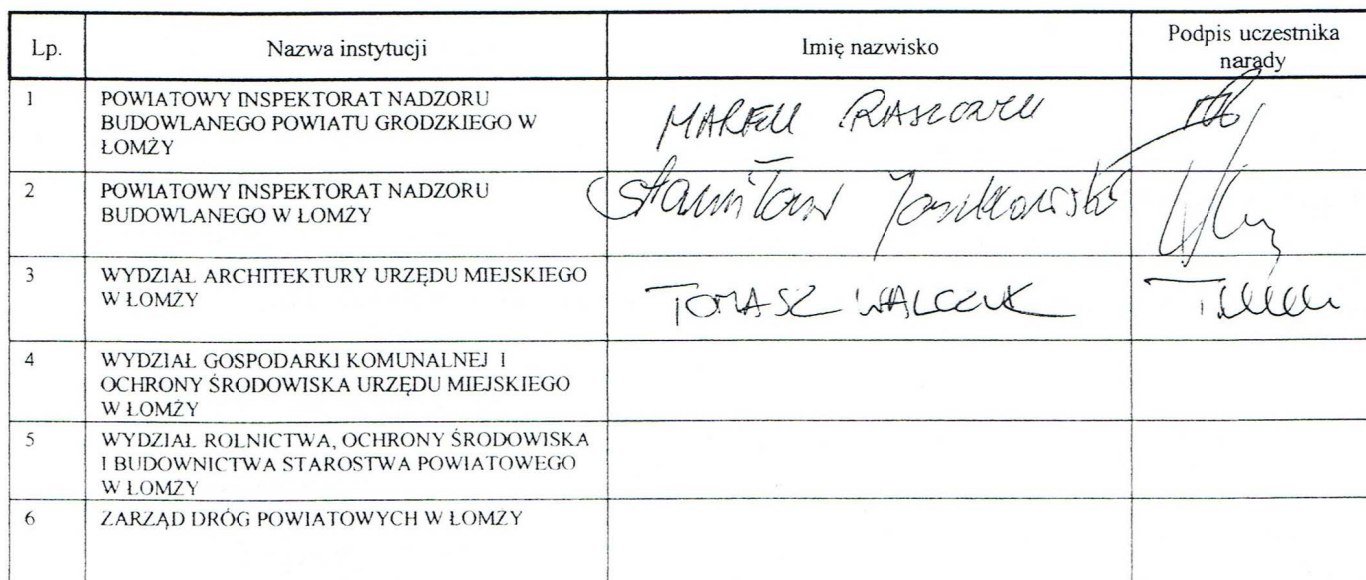 Lp.
Nazwa instytucji
Imię nazwisko
Podpis uczestnika
narady
1
POWIATOWY INSPEKTORAT NADZORU
BUDOWLANEGO POWIATU GRODZKIEGO W
ŁOMŻY
MAREK
2
POWIATOWY INSPEKTORAT NADZORU
BUDOWLANEGO W ŁOMŻY
Stanisław Jankowski
3
WYDZIAŁ ARCHITEKTURY URZĘDU MIEJSKIEGO
W ŁOMŻY
TOMASZ WALCZUK
4
WYDZIAŁ GOSPODARKI KOMUNALNEJ I
OCHRONY ŚRODOWISKA URZĘDU MIEJSKIEGO
W ŁOMŻY
5
WYDZIAŁ ROLNICTWA, OCHRONY ŚRODOWISKA
I BUDOWNICTWA STAROSTWA POWIATOWEGO
W ŁOMŻY
6
ZARZĄD DRÓG POWIATOWYCH W ŁOMŻY